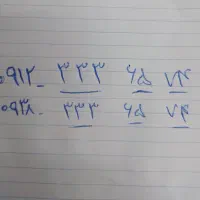 ۰۹۱۲- ۳۳۳ ۶۵ ۷۴
۰۹۳۸- ۳۳۳ ۶۵ ۷۴